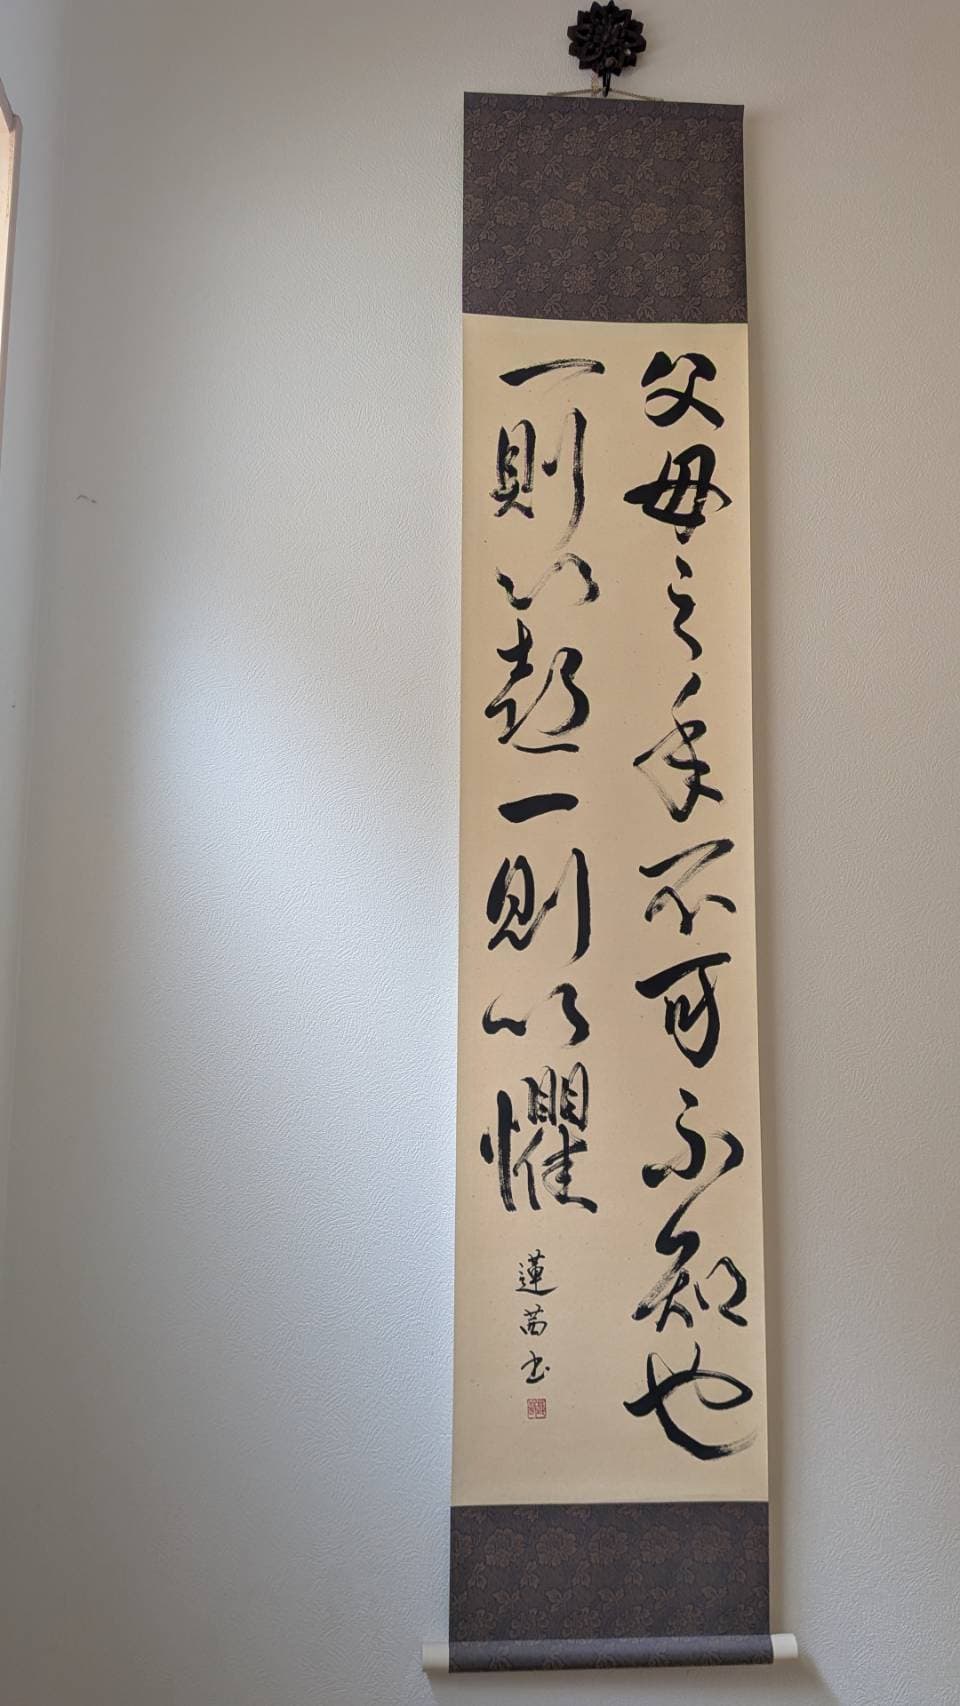 父母之年不可不知也
一則以喜一則以懼
蓮茜書